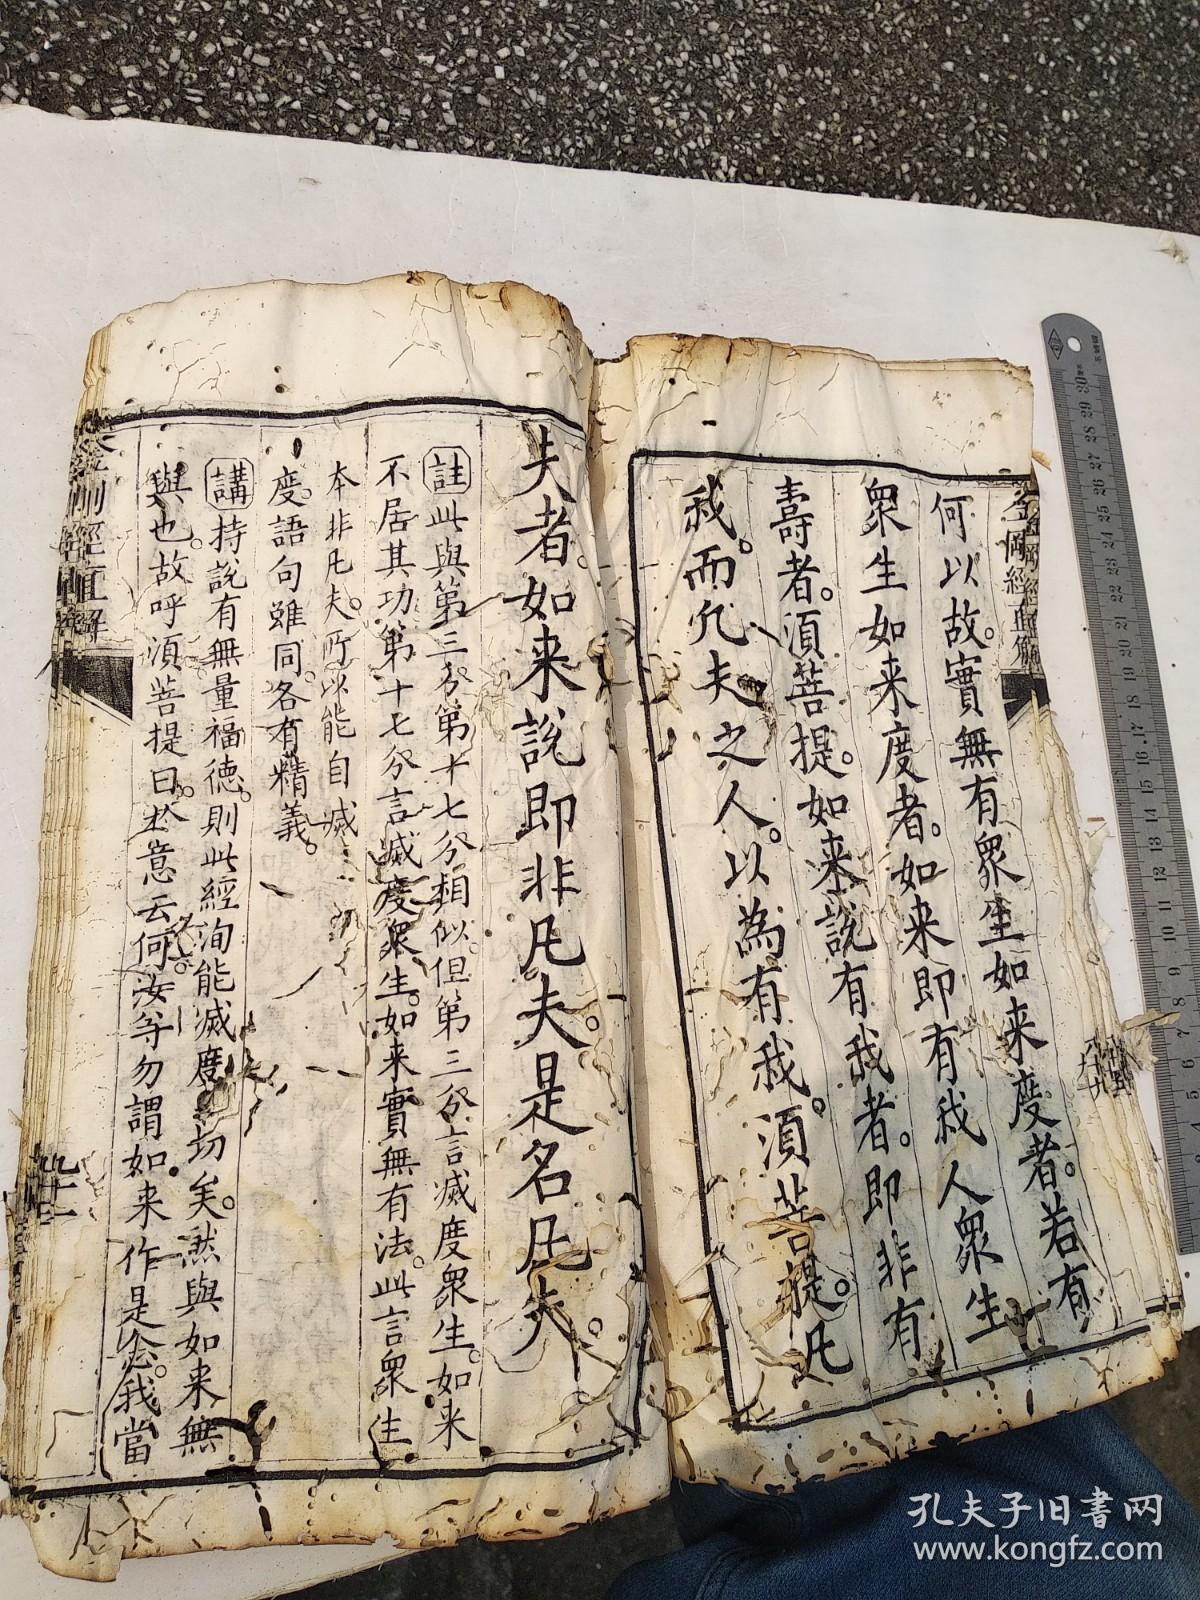 何以故。實無有眾生如来度者。若有
眾生如来度者。如来即有我人眾生
壽者。須菩提。如来說有我者。即非有
我。而凡夫之人。以為有我。須菩提。凡
夫者。如来說即非凡夫。是名凡夫。
註此與第三分第十七分相似。但第三分言滅度眾生。如来
不居其功。第十七分言滅度眾生。如来實無有法。此言眾生
本非凡夫。所以能自滅
度。語句雖同。各有精義。
講持說有無量福德。則此經洵能滅度一切矣。然與如来無
與也。故呼須菩提曰。於意云何。汝等勿謂如来作是念。我當
金剛經直解
九十二
孔夫子旧書网
www.kongfz.com